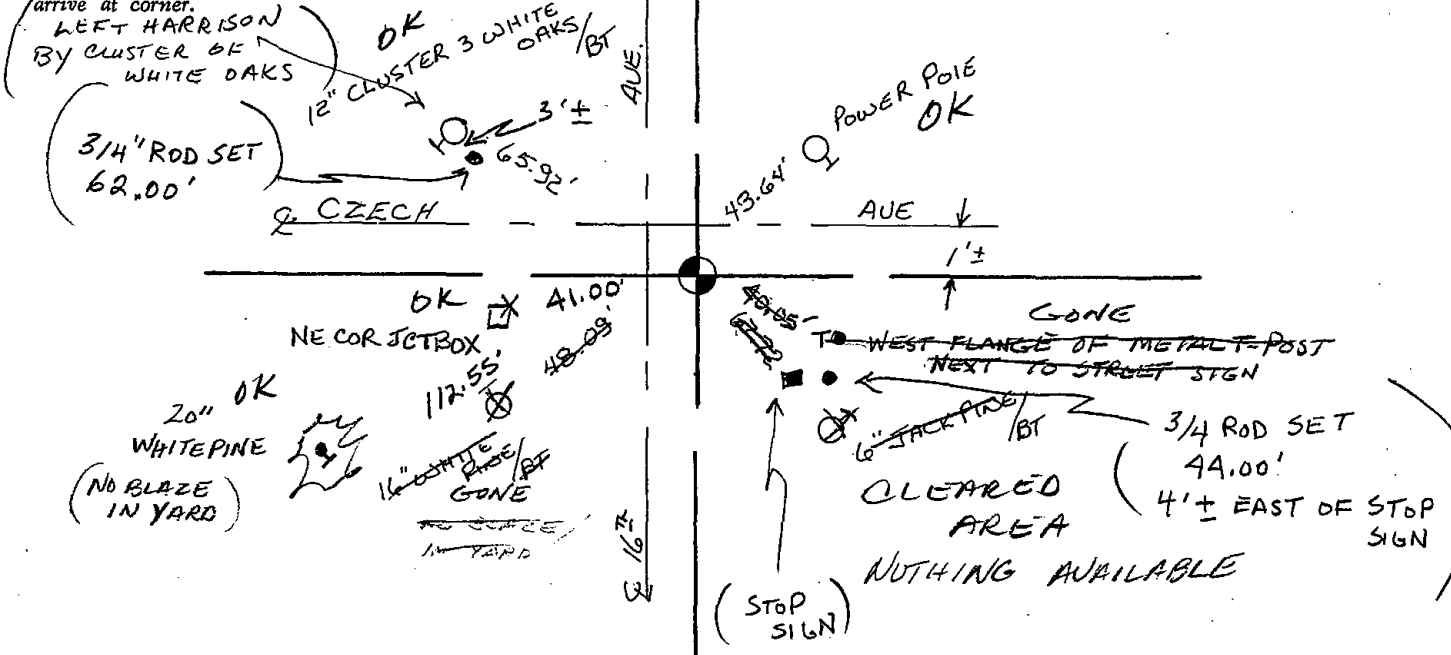 arrive at corner.
LEFT HARRISON
BY CLUSTER OF
WHITE OAKS
OK
12" CLUSTER 3 WHITE
OAKS/BT
AVE.
3'±
65.92'
3/4" ROD SET
62.00'
POWER POLE
OK
43.64'
℄ CZECH
AVE
1'±
OK
41.00'
NE COR JCTBOX
48.09'
40.05'
GONE
WEST FLANGE OF METAL T-POST
NEXT TO STREET SIGN
112.55'
OK
20"
WHITE PINE
(NO BLAZE
IN YARD)
16" WHITE
PINE/BT
GONE
NO BLAZE
IN YARD
6" JACK PINE/BT
3/4 ROD SET
44.00'
4'± EAST OF STOP
SIGN
CLEARED
AREA
NOTHING AVAILABLE
℄ 16TH
(STOP
SIGN)